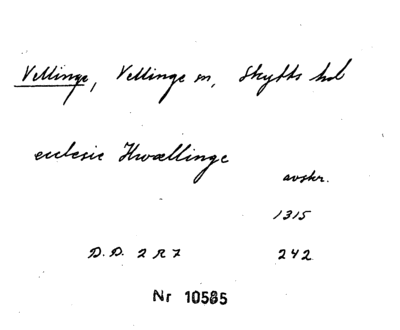 Vellinge, Vellinge sn, Skytts hd
ecclesie Hwællinge
avskr.
1315
D.D. 2 R 7 242
Nr 10585